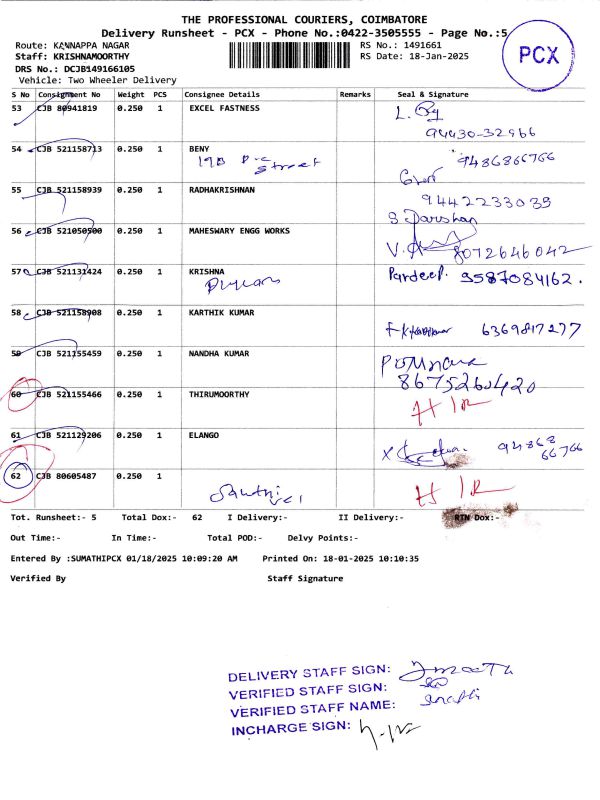 THE PROFESSIONAL COURIERS, COIMBATORE
Delivery Runsheet - PCX - Phone No.:0422-3505555 - Page No.:5
PCX
Route: KANNAPPA NAGAR
RS No.: 1491661
Staff: KRISHNAMOORTHY
RS Date: 18-Jan-2025
DRS No.: DCJB149166105
Vehicle: Two Wheeler Delivery
S No Consignment No Weight PCS Consignee Details Remarks Seal & Signature
53 CJB 80941819 0.250 1 EXCEL FASTNESS
94430-32966
54 CJB 521158713 0.250 1 BENY
190 Street 9486866766
55 CJB 521158939 0.250 1 RADHAKRISHNAN
9442233039
S Darshan
56 CJB 521050500 0.250 1 MAHESWARY ENGG WORKS
8072646042
57 CJB 521131424 0.250 1 KRISHNA Pardeep. 9587084162.
58 CJB 521158908 0.250 1 KARTHIK KUMAR
6369817277
59 CJB 521155459 0.250 1 NANDHA KUMAR
8675260420
60 CJB 521155466 0.250 1 THIRUMOORTHY
61 CJB 521129206 0.250 1 ELANGO
94868
66766
62 CJB 80605487 0.250 1
Tot. Runsheet:- 5 Total Dox:- 62 I Delivery:- II Delivery:- RTN Dox:-
Out Time:- In Time:- Total POD:- Delvy Points:-
Entered By :SUMATHIPCX 01/18/2025 10:09:20 AM Printed On: 18-01-2025 10:10:35
Verified By Staff Signature
DELIVERY STAFF SIGN:
VERIFIED STAFF SIGN:
VERIFIED STAFF NAME:
INCHARGE SIGN: